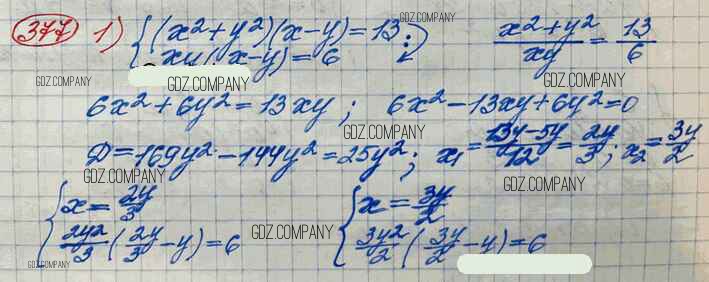 377 1) { (x²+y²)(x-y)=13 :) GDZ.COMPANY x²+y²/xy = 13/6
xy(x-y)=6
GDZ.COMPANY GDZ.COMPANY GDZ.COMPANY
6x²+6y²=13xy; 6x²-13xy+6y²=0
GDZ.COMPANY
D=169y²-144y²=25y²; x₁=13y-5y/12=2y/3; x₂=3y/2
GDZ.COMPANY GDZ.COMPANY
{ x=2y/3 { x=3y/2
GDZ.COMPANY
2y²/3(2y/3-y)=6 3y²/2(3y/2-y)=6
GDZ.COMPANY